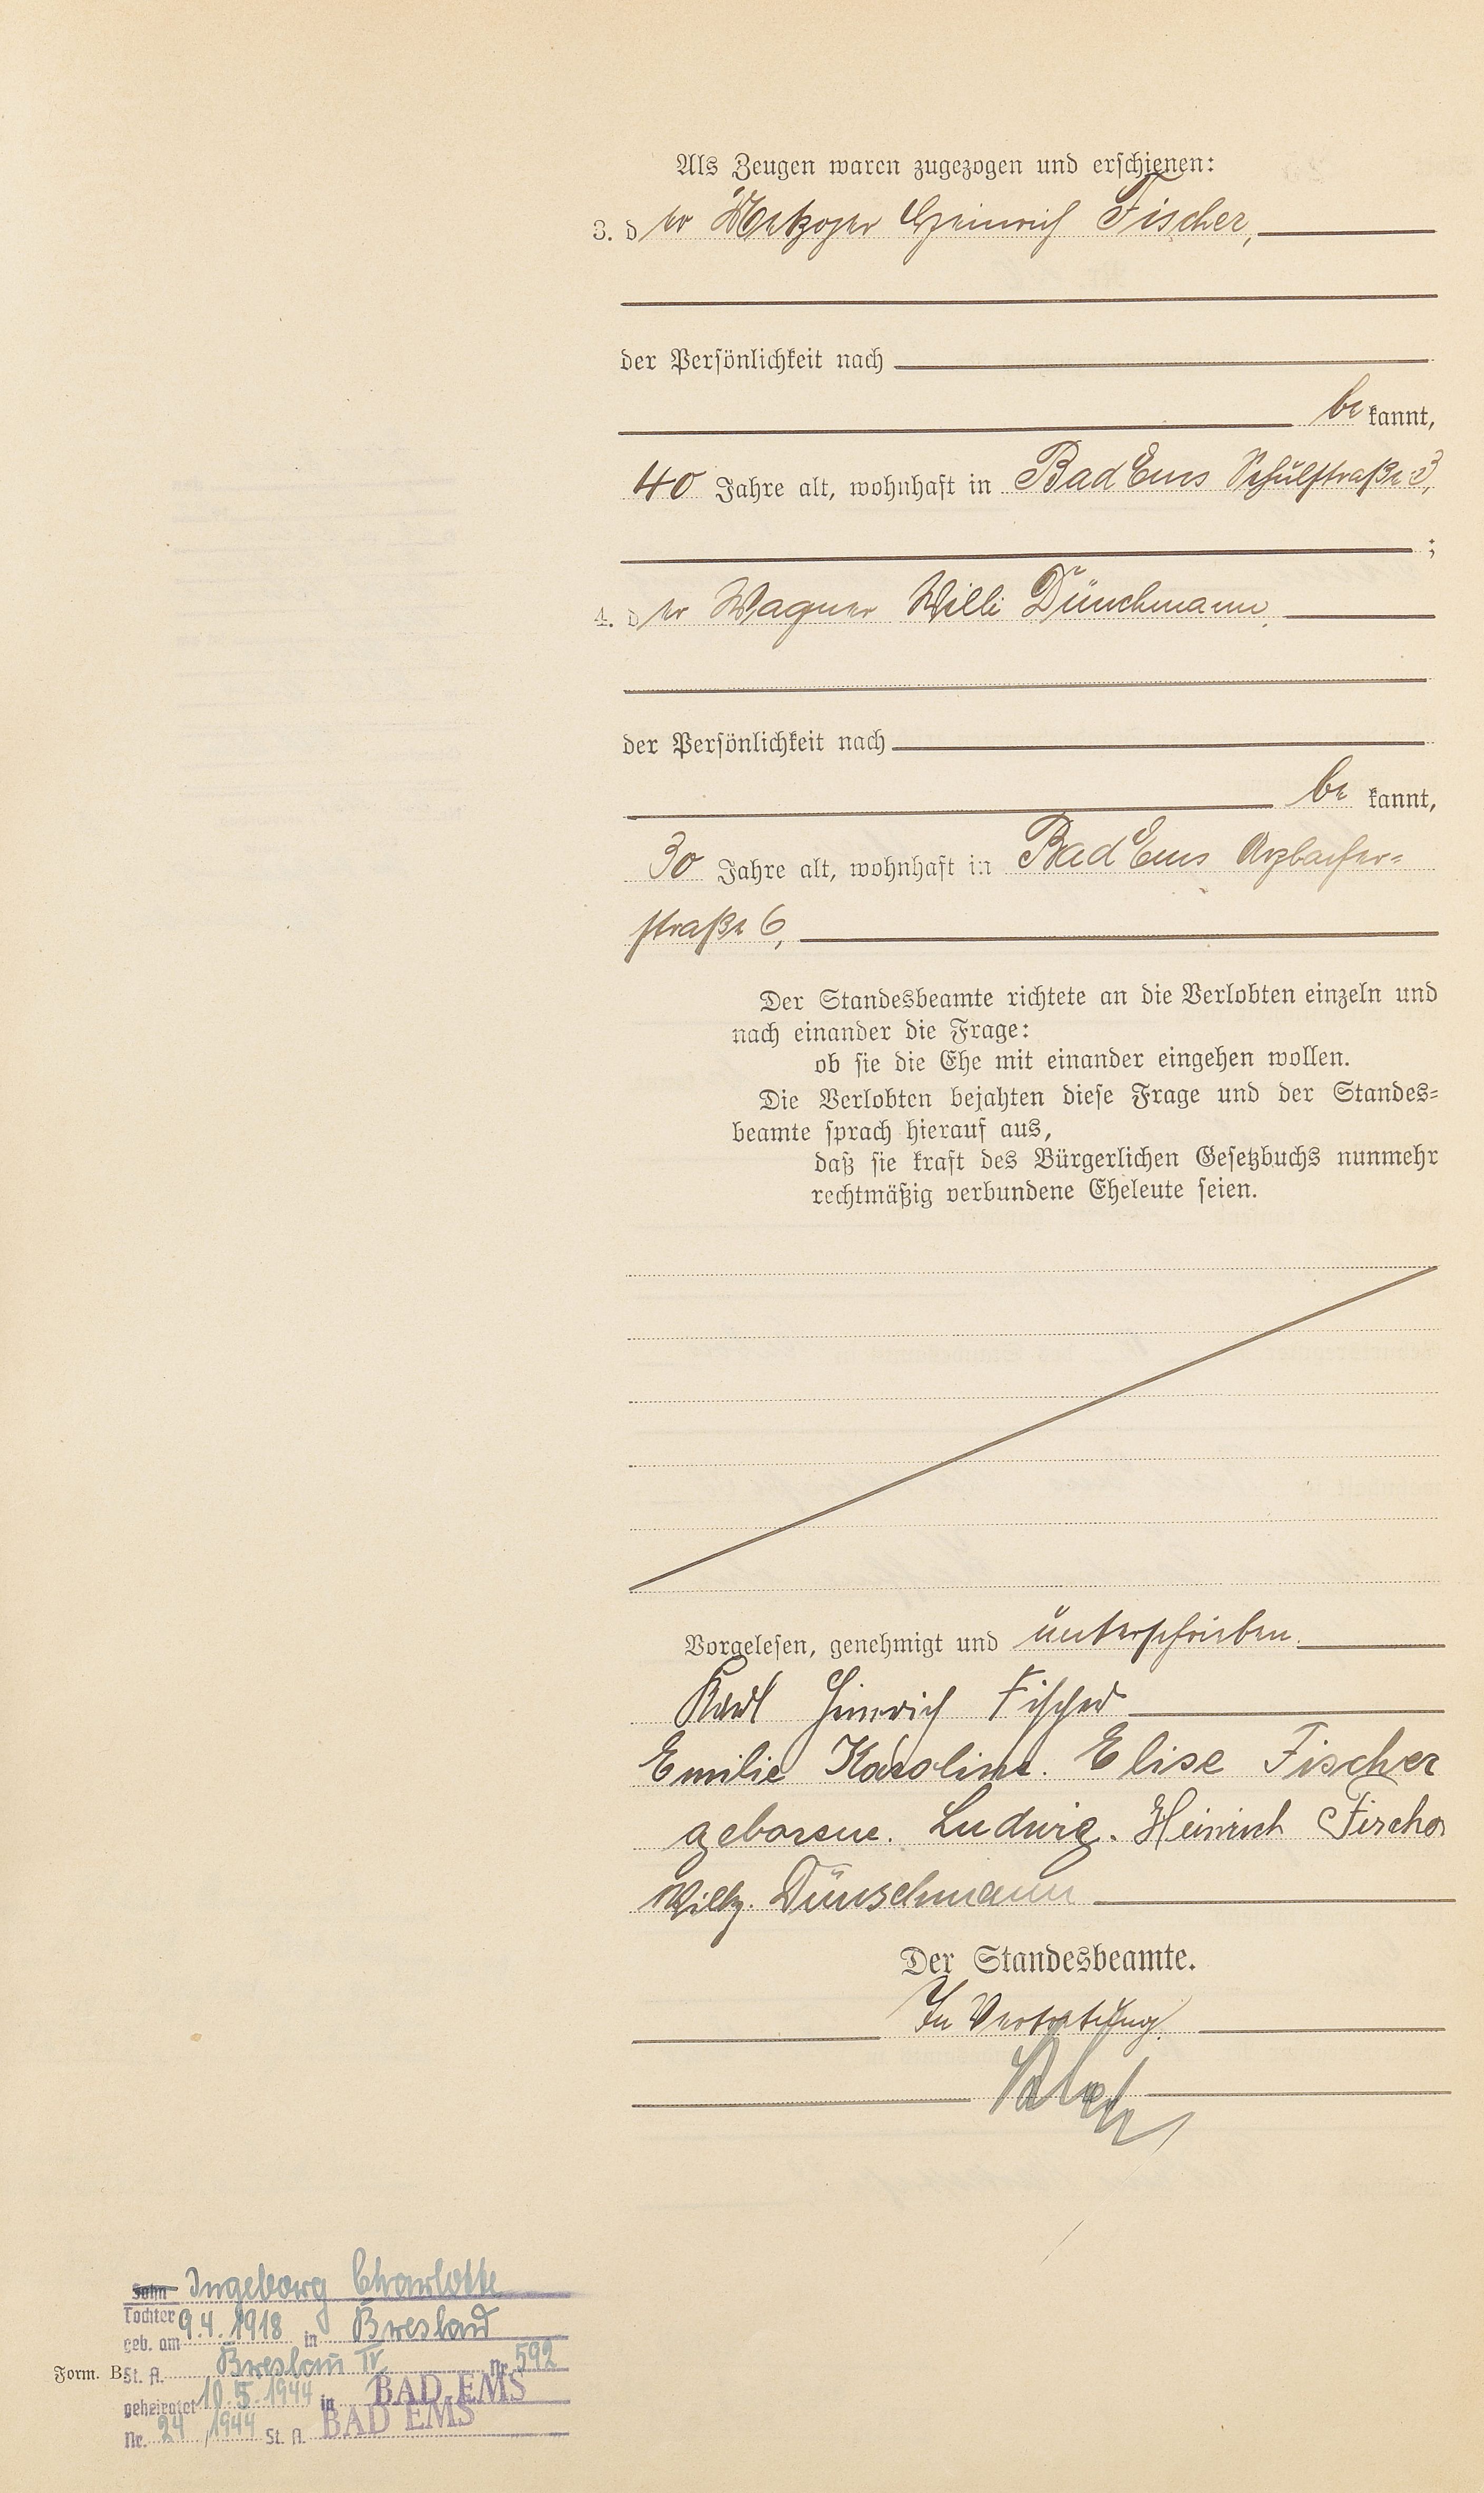 Als Zeugen waren zugezogen und erschienen:
3. der Metzger Heinrich Fischer,
der Persönlichkeit nach
be kannt,
40 Jahre alt, wohnhaft in Bad Ems Schulstraße 3,
;
4. der Wagner Willi Dünchmann,
der Persönlichkeit nach
be kannt,
30 Jahre alt, wohnhaft in Bad Ems Arzbacher-
straße 6,
Der Standesbeamte richtete an die Verlobten einzeln und
nach einander die Frage:
ob sie die Ehe mit einander eingehen wollen.
Die Verlobten bejahten diese Frage und der Standes-
beamte sprach hierauf aus,
daß sie kraft des Bürgerlichen Gesetzbuchs nunmehr
rechtmäßig verbundene Eheleute seien.
Vorgelesen, genehmigt und unterschrieben.
Karl Heinrich Fischer
Emilie Karoline. Elise Fischer
geborene. Ludwig. Heinrich Fischer
Wilh. Dünschmann
Der Standesbeamte.
In Vertretung.
Sohn Ingeborg Charlotte
Tochter
geb. am 9.4.1918 in Breslau
Form. B. St. A. Breslau IV Nr. 592
geheiratet 10.5.1944 in BAD EMS
Nr. 24/1944 St. A. BAD EMS